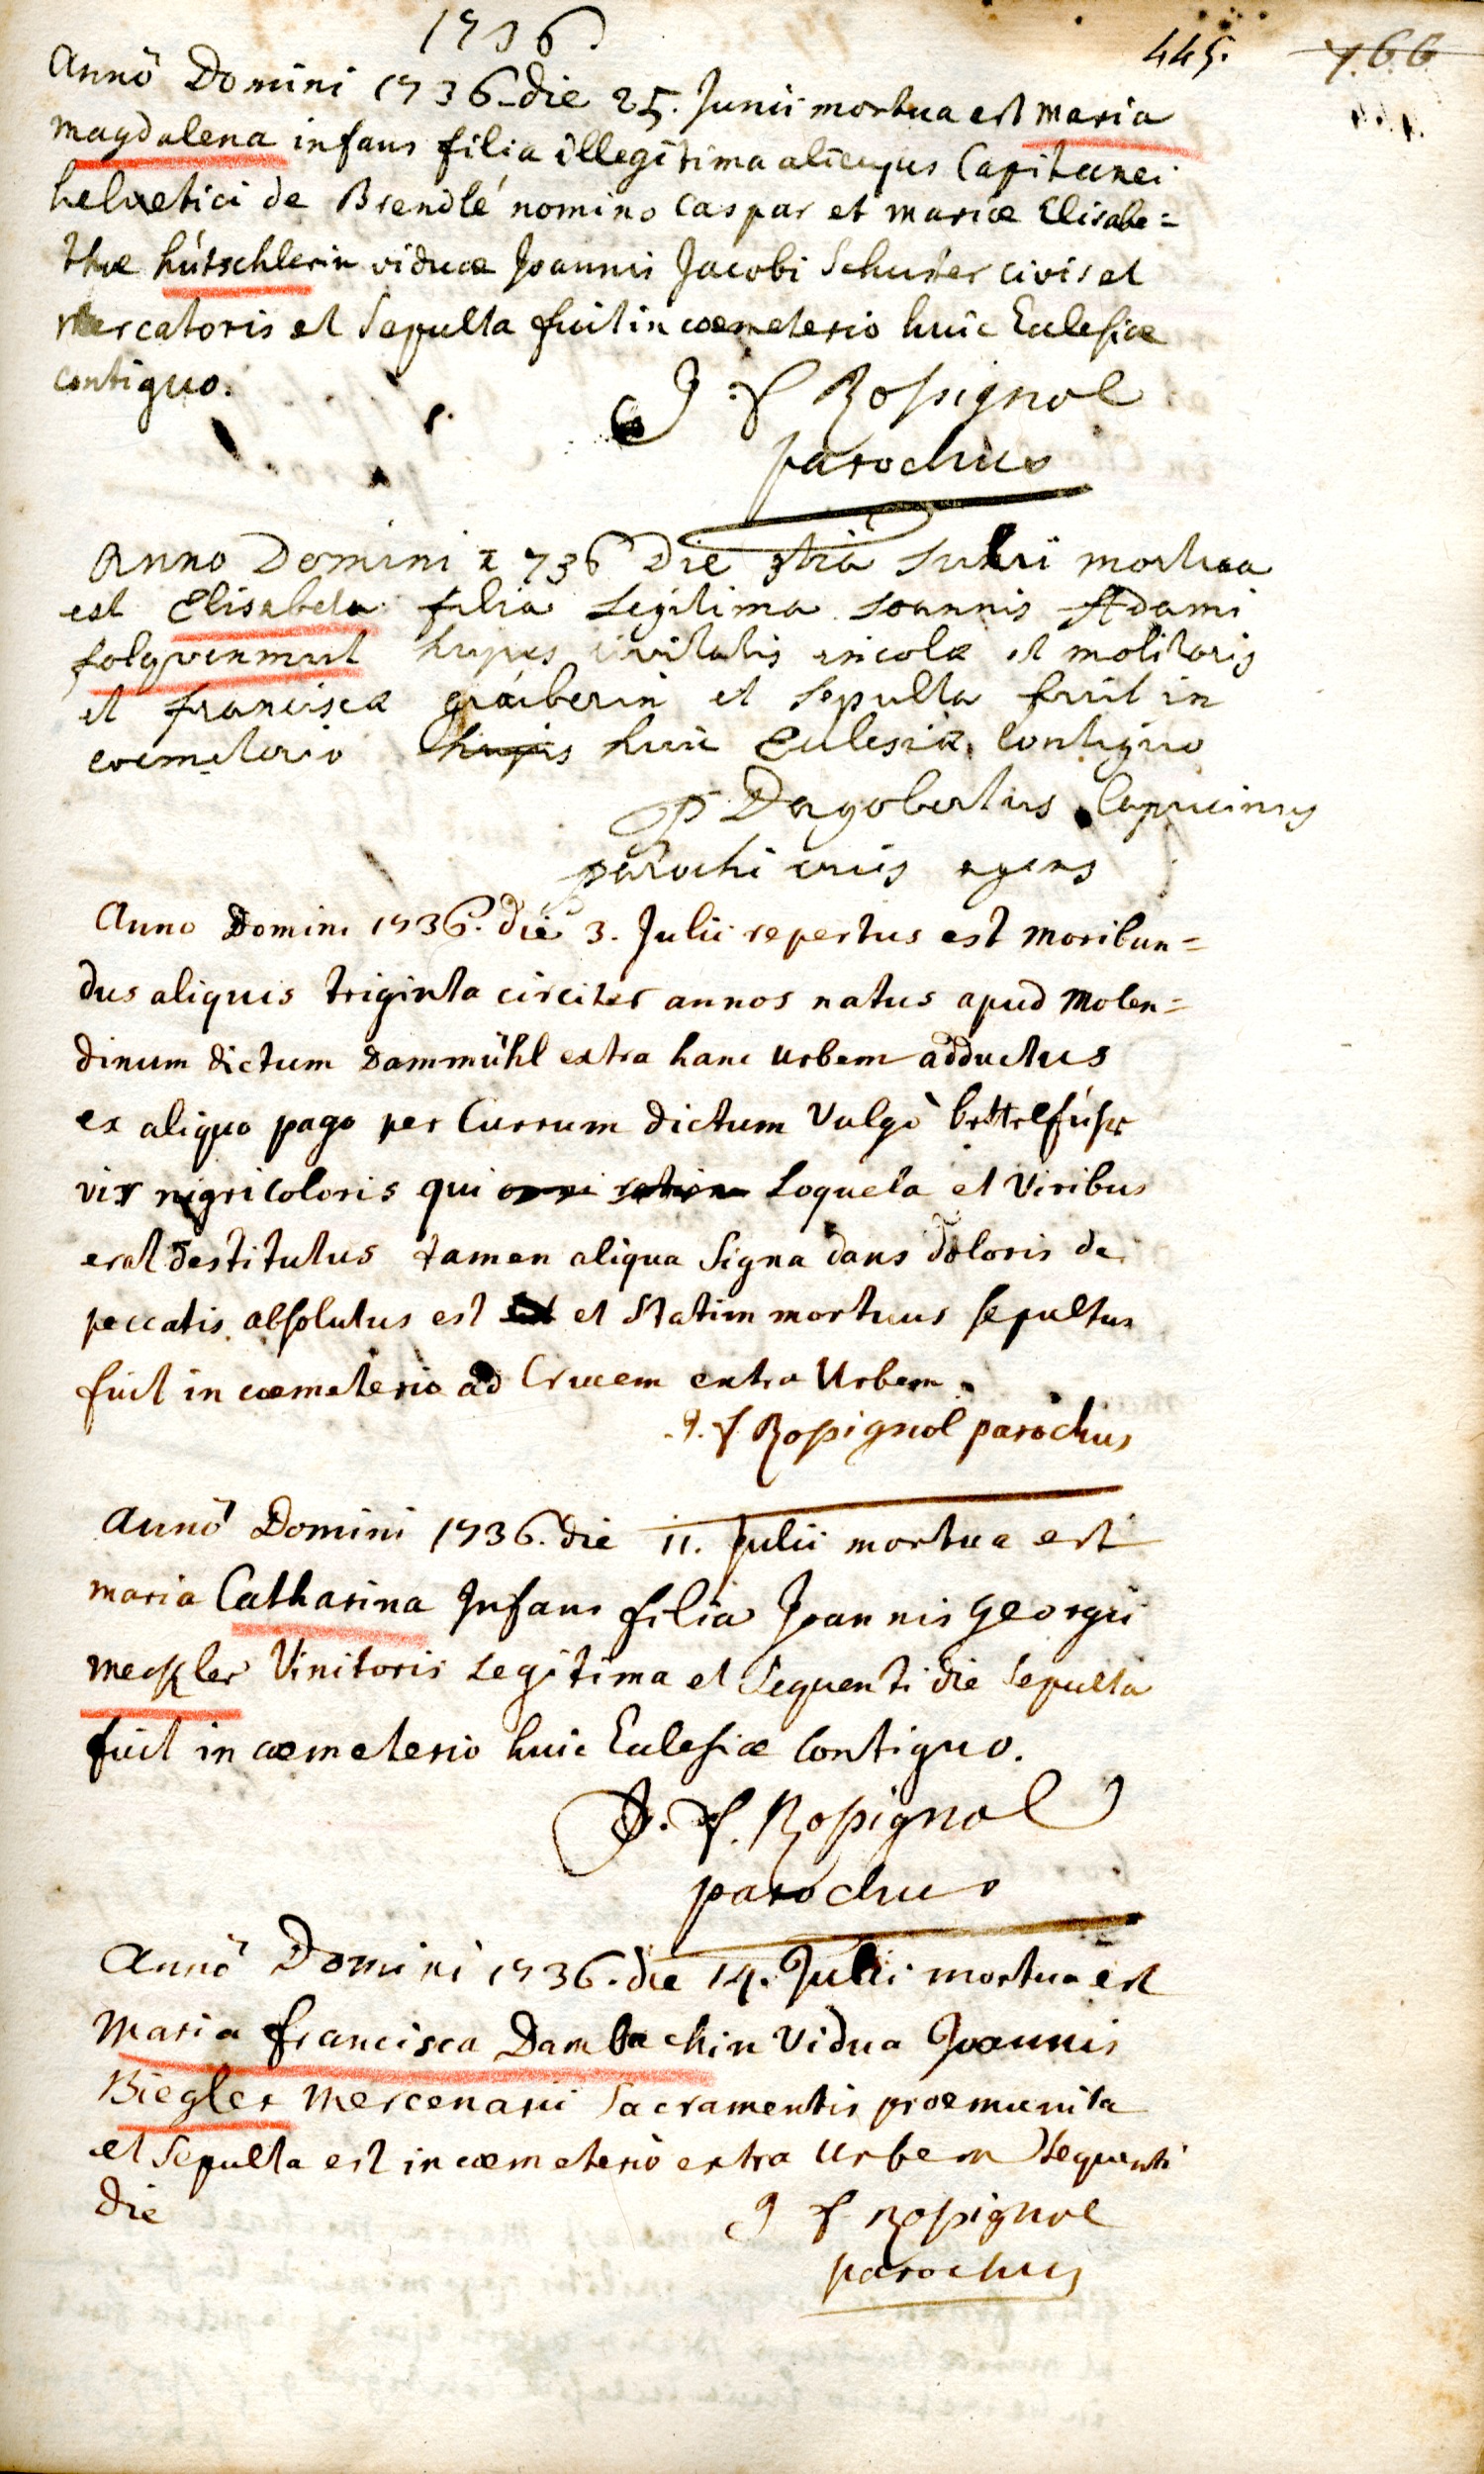 1736
445. 766
Annô Domini 1736 die 25. Junii mortua est Maria
Magdalena infans filia illegitima alicujus Capitanei
helvetici de Brendlé nomino Caspar et mariæ Elisabe=
thæ hütschlerin viduæ Joannis Jacobi Schuster civis et
Mercatoris et Sepulta fuit in coemeterio huic Ecclesiæ
contiguo.
J. f Rossignol
parochus
Anno Domini 1736 Die 3tia Julii mortua
est Elisabeta filia Legitima Joannis Adami
folquenmut hujus civitatis incolæ et molitoris
et franciscæ gräiberin et Sepulta fuit in
coemeterio hujus huic Eclesiæ Contiguo
P Dagobertus Capucinus
parochi vices agens
Anno Domini 1736. die 3. Julii repertus est Moribun=
dus aliquis triginta circiter annos natus apud Molen=
dinum dictum Dammühl extra hanc urbem adductus
ex aliquo pago per Currum dictum Vulgò bettelfuhr
vir nigri coloris qui omni Loquela et Viribus
erat destitutus tamen aliqua Signa dans doloris de
peccatis absolutus est et et Statim mortuus sepultus
fuit in coemeterio ad Crucem extra Urbem.
J. f Rossignol parochus
Annô Domini 1736. die 11. Julii mortua est
Maria Catharina Infans filia Joannis georgii
meckler Vinitoris Legitima et Sequenti die Sepulta
fuit in coemeterio huic Ecclesiæ Contiguo.
J. f. Rossignol
parochus
Annô Domini 1736. die 14. Julii mortua est
Maria francisca Dambachin Vidua Joannis
Biegler Mercenarii Sacramentis præmunita
et Sepulta est in coemeteriô extra Urbem Sequenti
die
J f Rossignol
parochus